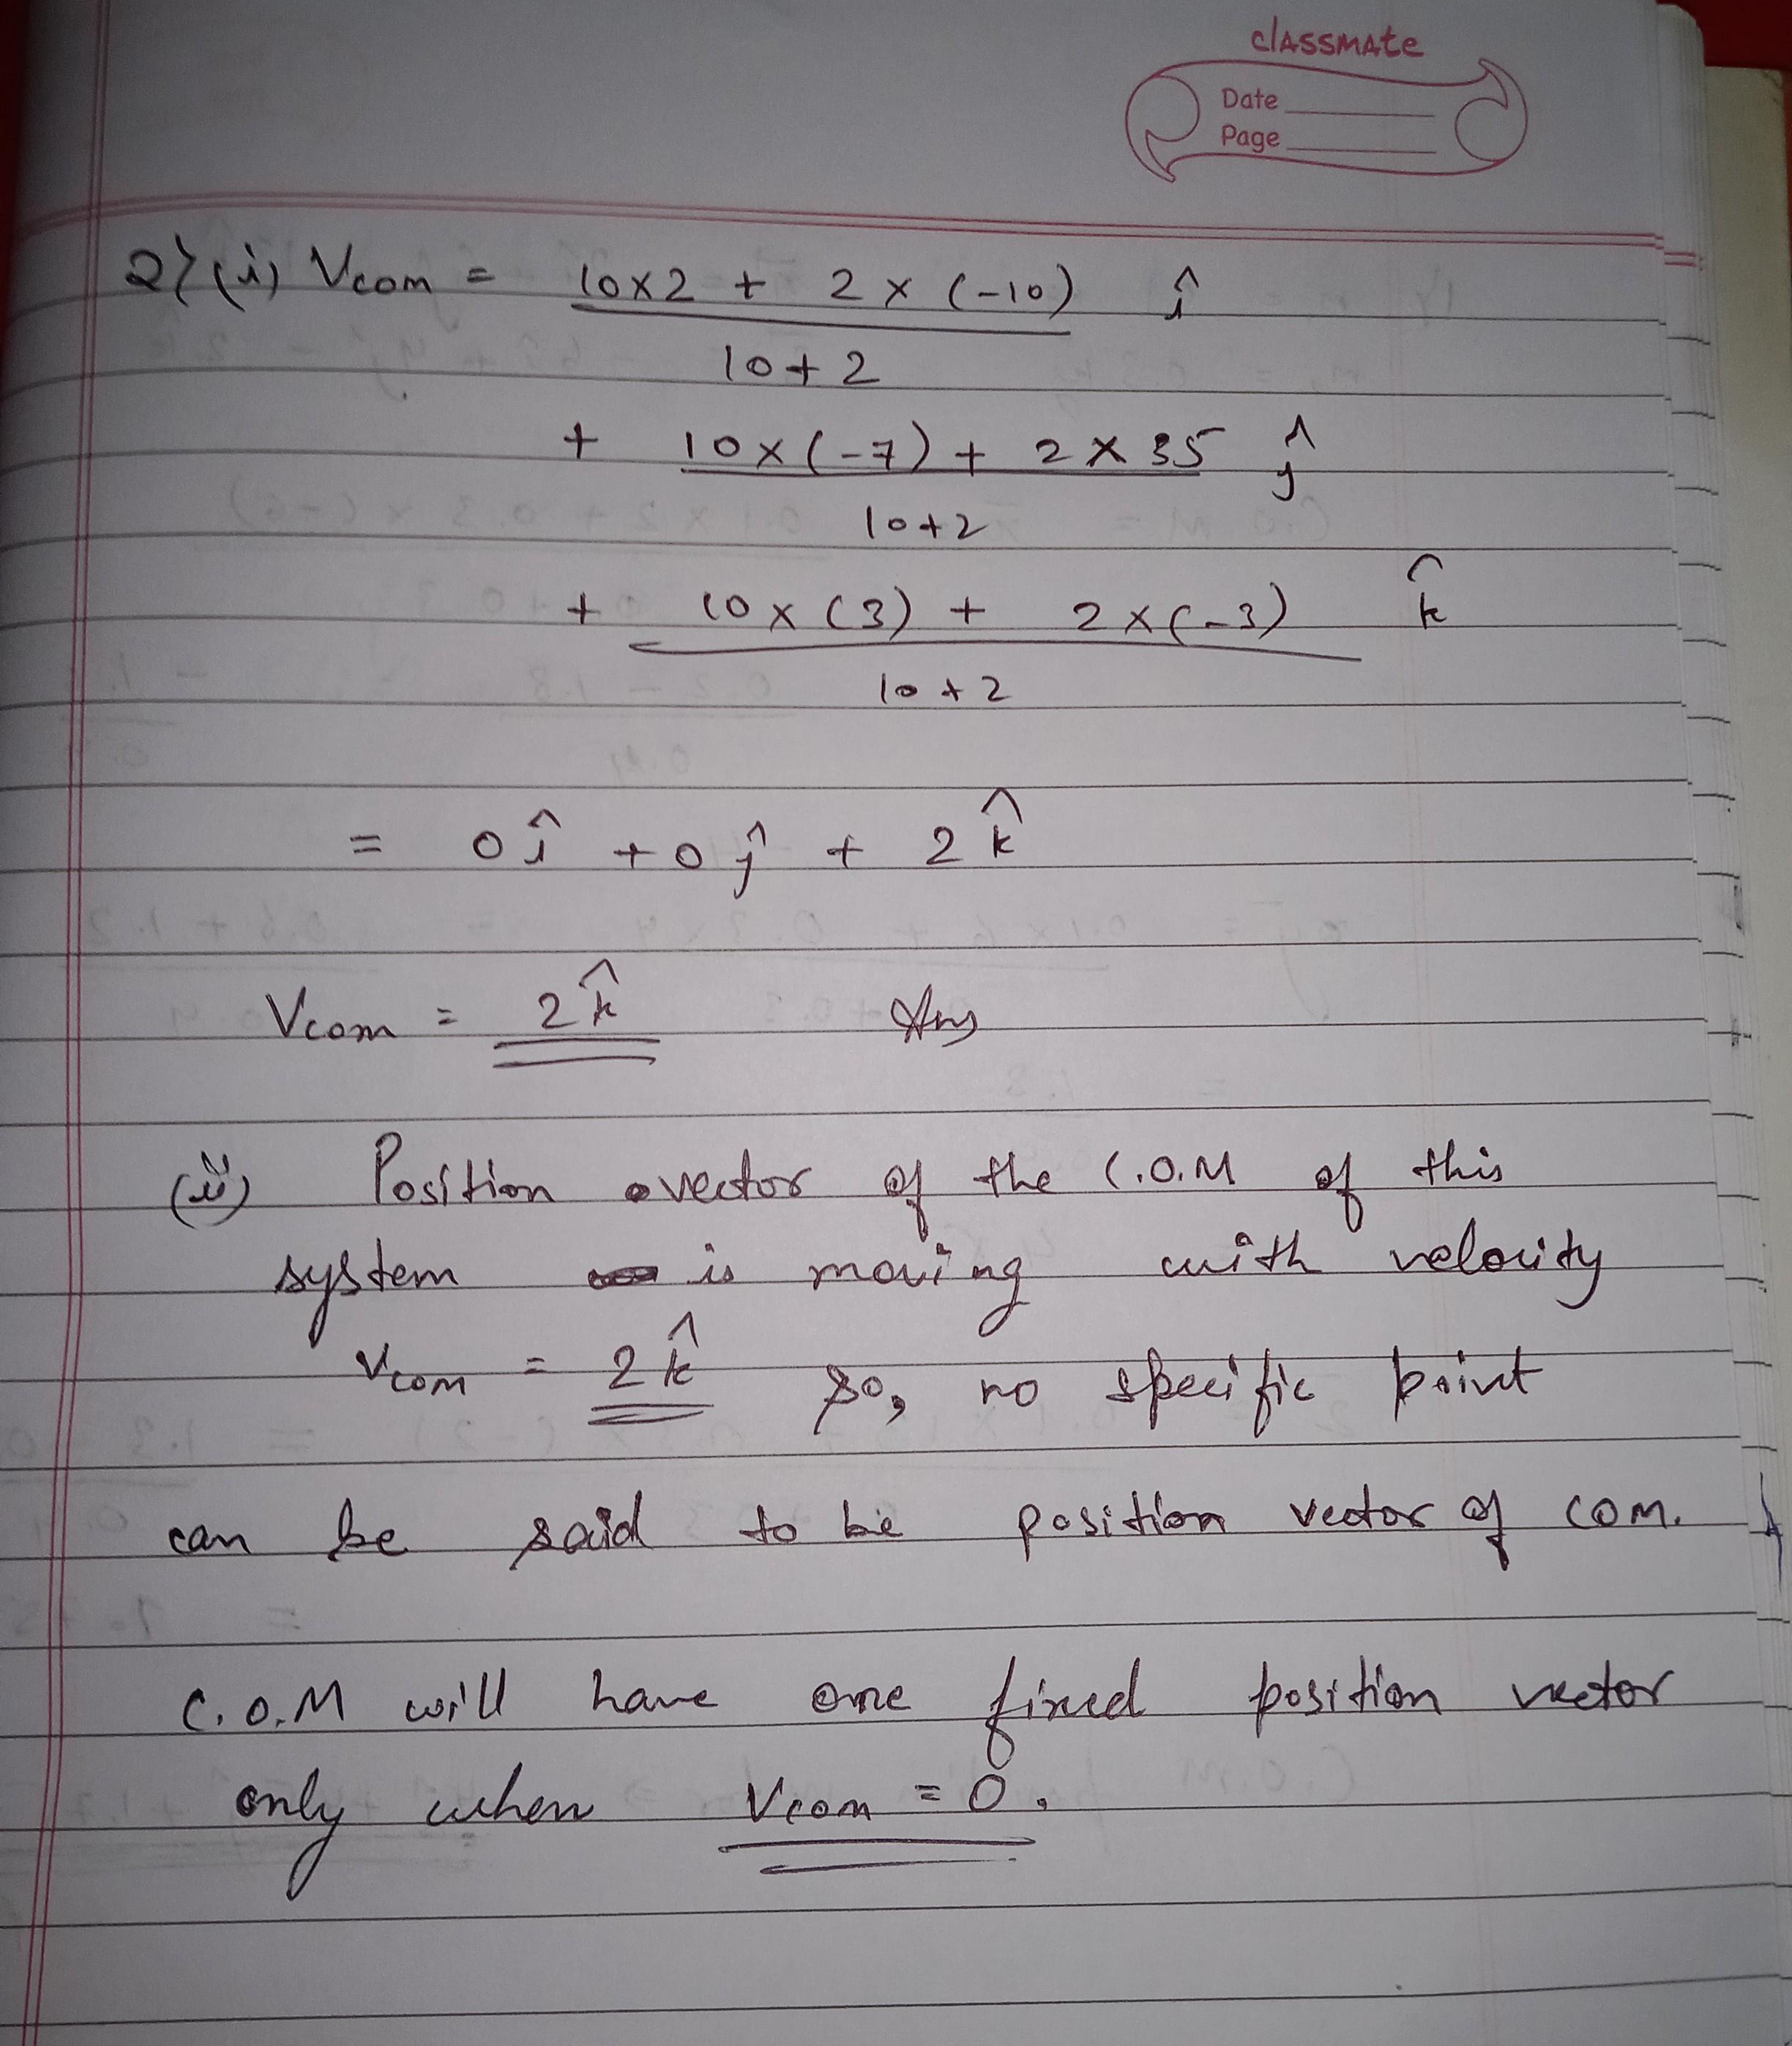 classmate
Date
Page
2> (i) Vcom = 10x2 + 2 x (-10) î
10+2
+ 10x(-7) + 2 x 35 ĵ
10+2
+ 10 x (3) + 2 x (-3) k̂
10+2
= 0 î + 0 ĵ + 2 k̂
Vcom = 2 k̂ Ans
(ii) Position vector of the C.O.M of this
system is moving with velocity
Vcom = 2 k̂ so, no specific point
can be said to be position vector of COM.
C.O.M will have one fixed position vector
only when Vcom = 0.